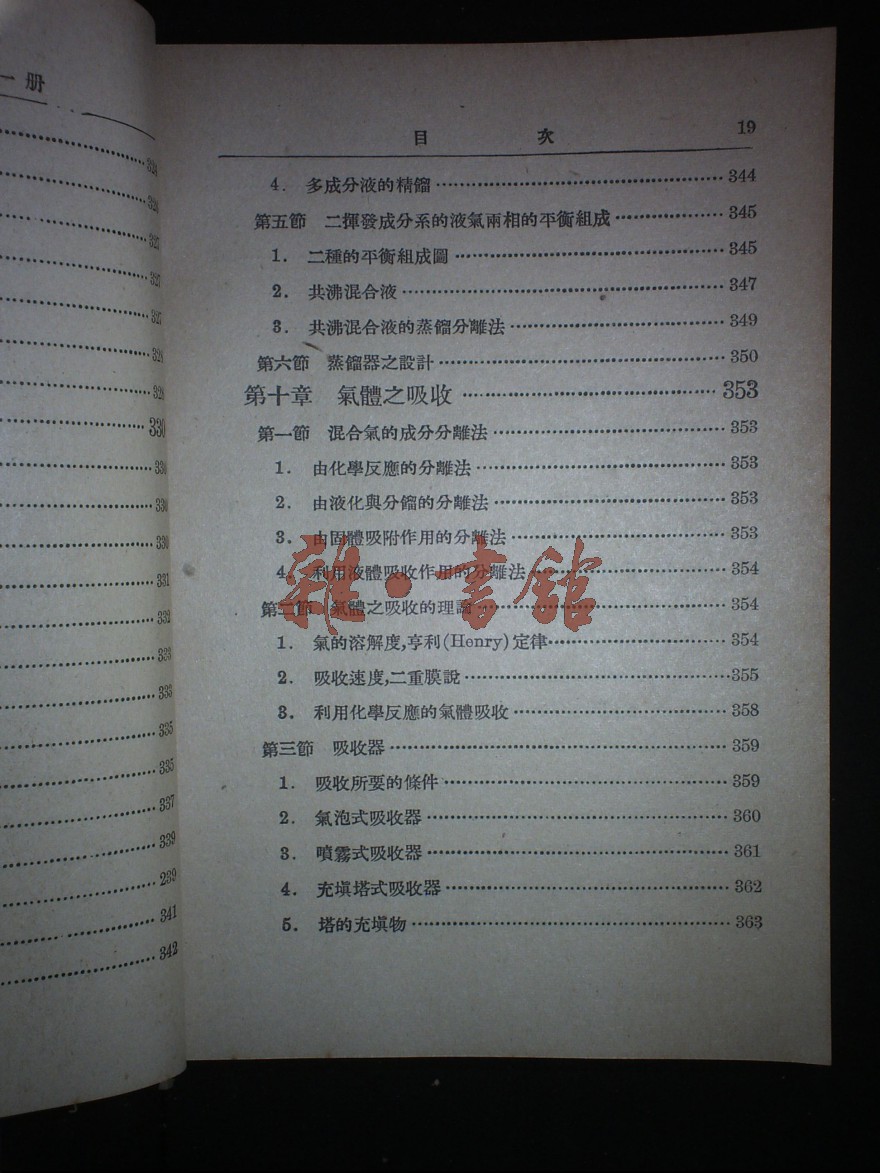 一册
324
326
327
327
327
328
328
330
330
330
330
331
332
333
333
335
335
337
339
239
341
342
目 次 19
4. 多成分液的精餾 344
第五節 二揮發成分系的液氣兩相的平衡組成 345
1. 二種的平衡組成圖 345
2. 共沸混合液 347
3. 共沸混合液的蒸餾分離法 349
第六節 蒸餾器之設計 350
第十章 氣體之吸收 353
第一節 混合氣的成分分離法 353
1. 由化學反應的分離法 353
2. 由液化與分餾的分離法 353
3. 由固體吸附作用的分離法 353
4. 利用液體吸收作用的分離法 354
第二節 氣體之吸收的理論 354
1. 氣的溶解度,亨利(Henry)定律 354
2. 吸收速度,二重膜說 355
3. 利用化學反應的氣體吸收 358
第三節 吸收器 359
1. 吸收所要的條件 359
2. 氣泡式吸收器 360
3. 噴霧式吸收器 361
4. 充塡塔式吸收器 362
5. 塔的充塡物 363
雜·書館